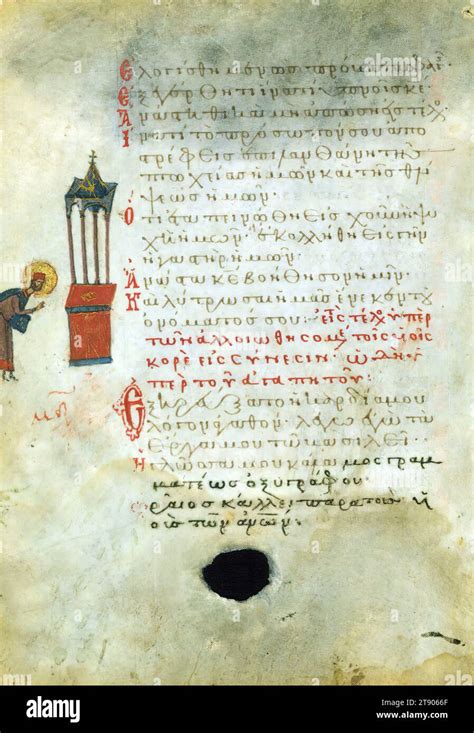 Ἐλογίσθημεν ὡς πρόβατα
Ἐξεγέρθητι ἱνατί ὑπνοῖς κε
ἀνάστηθι καὶ μὴ ἀπώσῃ εἰς τέλος
Ἱνατί τὸ πρόσωπόν σου ἀπο
στρέφεις ἐπιλανθάνῃ τῆς
πτωχείας ἡμῶν καὶ τῆς θλί
ψεως ἡμῶν
Ὅτι ἐταπεινώθη εἰς χοῦν ἡ ψυ
χὴ ἡμῶν. ἐκολλήθη εἰς γῆν
ἡ γαστὴρ ἡμῶν
Ἀνάστα κε βοήθησον ἡμῖν
καὶ λύτρωσαι ἡμᾶς ἕνεκεν τοῦ
ὀνόματός σου. εἰς τέλος ὑπὲρ
τῶν ἀλλοιωθησομ τοῖς υἱοῖς
κορὲ εἰς σύνεσιν. ὠδὴ ὑ
πὲρ τοῦ ἀγαπητοῦ
Ἐξηρεύξατο ἡ καρδία μου
λόγον ἀγαθόν. λέγω ἐγὼ τὰ
ἔργα μου τῷ βασιλεῖ
Ἡ γλῶσσά μου κάλαμος γραμ
ματέως ὀξυγράφου
Ὡραῖος κάλλει παρὰ τοὺς υ
ἱοὺς τῶν ανων.
alamy
Image ID: 2T9066F
www.alamy.com